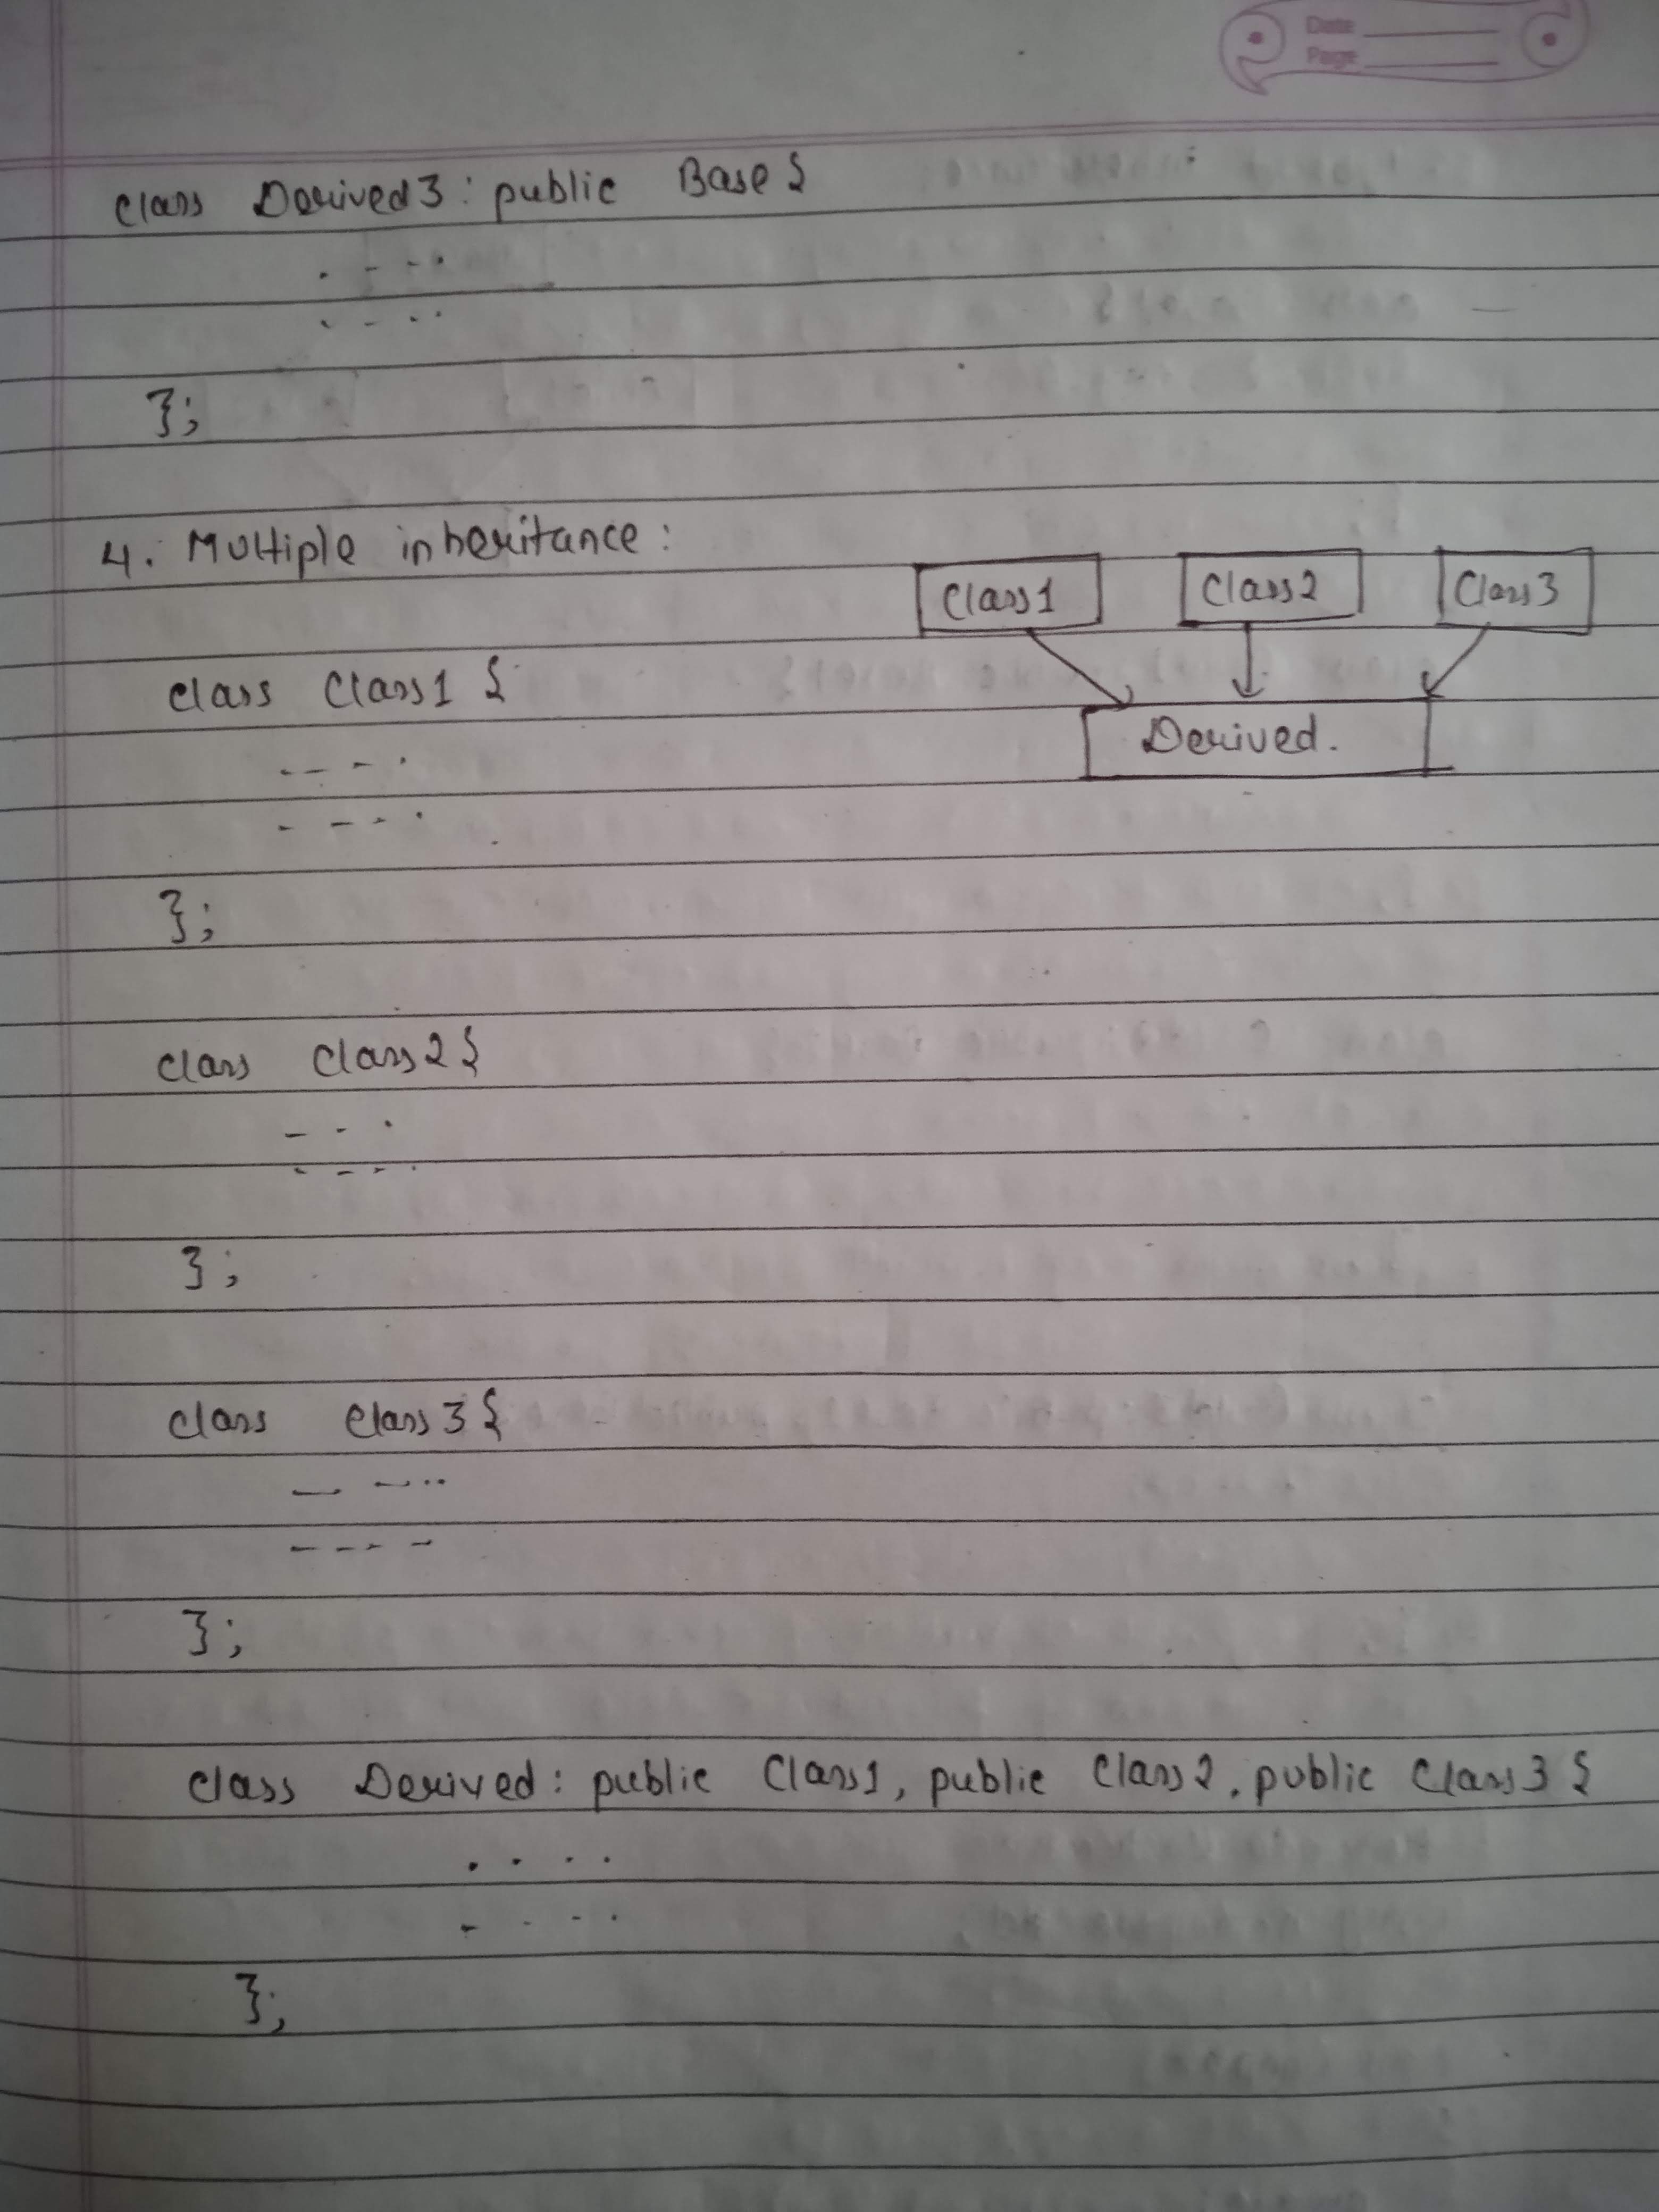 Date
Page
class Derived3: public Base{
. - - .
. - - .
};
4. Multiple inheritance:
Class1 Class2 Class3
class Class1 {
Derived.
- - - .
- - - .
};
class Class2{
- - .
- - - .
};
class Class3{
- - - . .
- - - -
};
class Derived: public Class1, public Class2, public Class3 {
. . . .
- . - .
};